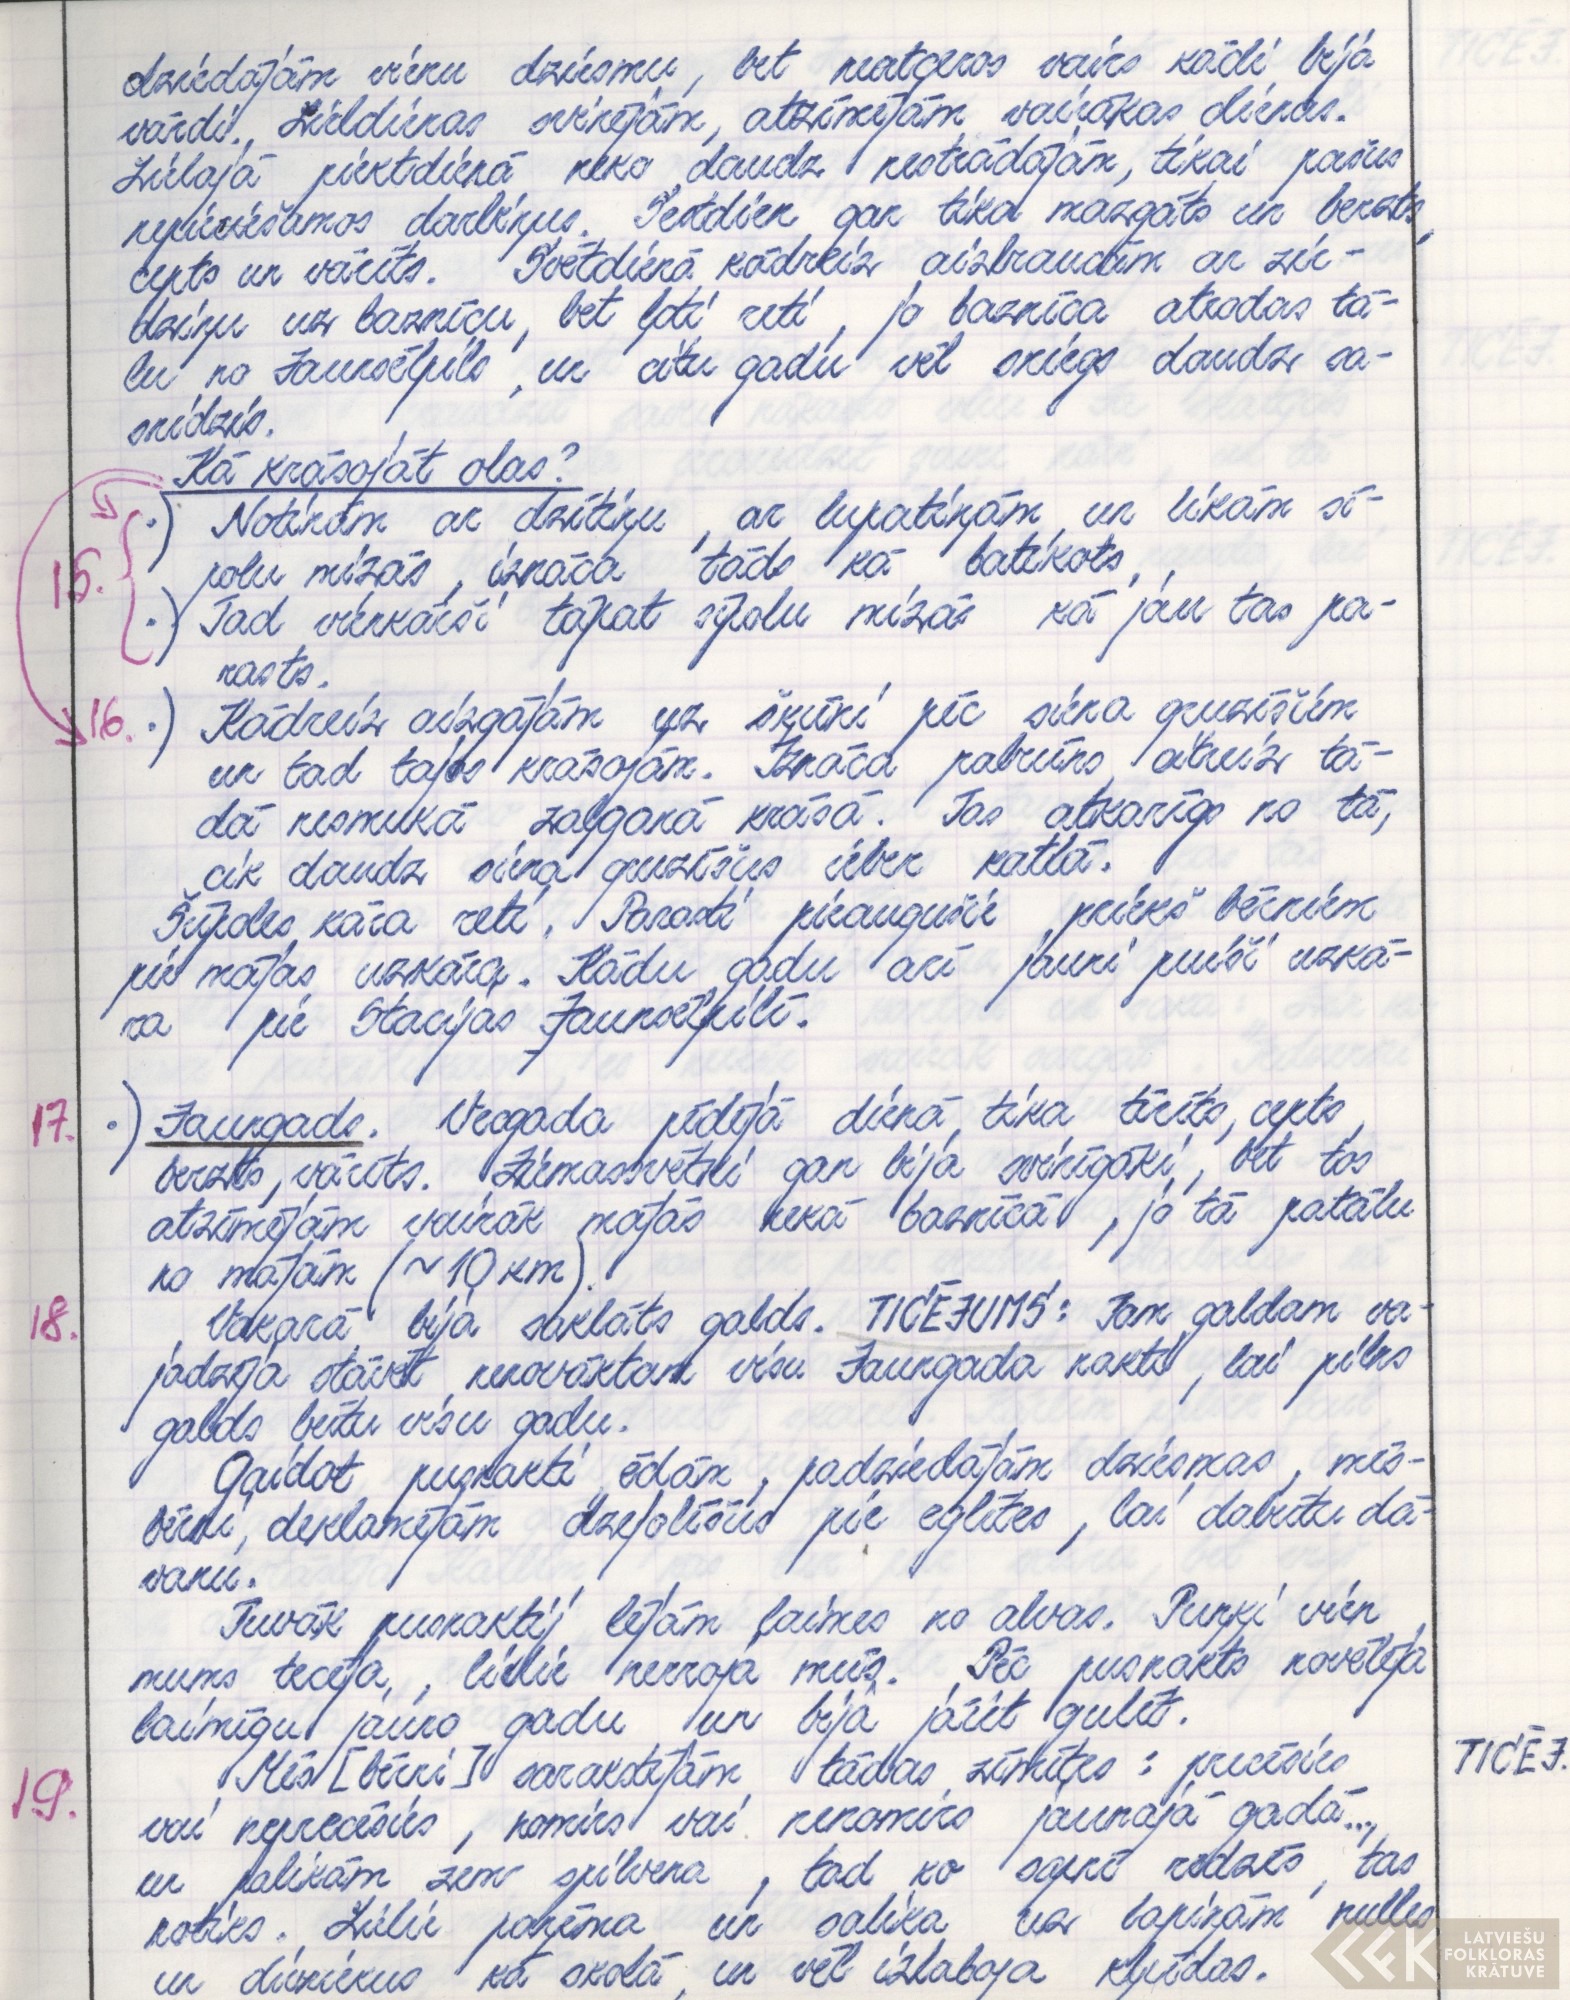 dziedājām vienu dziesmu, bet neatceros vairs kādi bija
vārdi. Lieldienas svinējām, atzīmējām vairākas dienas.
Lielajā piektdienā neko daudz nestrādājām, tikai pašus
nepieciešamos darbiņus. Sestdien gan tika mazgāts un berzts,
cepts un vārīts. Svētdienā kādreiz aizbraucām ar zir-
dziņu uz baznīcu, bet ļoti reti, jo baznīca atrodas tā-
lu no Jaunsēlpils, un citu gadu vēl sniegs daudz sa-
snidzis.
Kā krāsojāt olas?
15. ·) Notinām ar dzītiņu, ar lupatiņām un likām sī-
polu mizās, iznāca tāds kā batikots.
·) Tad vienkārši tāpat sīpolu mizās kā jau tas pa-
rasts.
16. ·) Kādreiz aizgājām uz šķūni pēc siena gruzīšiem
un tad tajos krāsojām. Iznāca pabrūns, citreiz tā-
dā nesmukā zaļganā krāsā. Tas atkarīgs no tā,
cik daudz siena gruzīšus ieber katlā.
Šūpoles kāra reti. Parasti pieaugušie priekš bērniem
pie mājas uzkāra. Kādu gadu arī jauni puiši uzkā-
ra pie Stacijas Jaunsēlpilī.
17. ·) Jaungads. Vecgada pēdējā dienā tika tīrīts, cepts,
berzts, vārīts. Ziemassvētki gan bija svinīgāki, bet tos
atzīmējām vairāk mājās nekā baznīcā, jo tā patālu
no mājām (~10 km).
18. Vakarā bija saklāts galds. TICĒJUMS: Tam galdam va-
jadzēja stāvēt nenovāktam visu Jaungada nakti, lai pilns
galds būtu visu gadu.
Gaidot pusnakti ēdām, padziedājām dziesmas, mēs-
bērni, deklamējām dzejolīšus pie eglītes, lai dabūtu dā-
vanu.
Tuvāk pusnaktij lējām laimes no alvas. Puņķi vien
mums tecēja, lielie nerroja mūs. Pēc pusnakts novēlēja
laimīgu jauno gadu un bija jāiet gulēt.
19. Mēs [bērni] sarakstījām tādas zīmītes: precēsies TICĒJ.
vai neprecēsies, nomirs vai nenomirs jaunajā gadā...,
un palikām zem spilvena, tad ko sapnī redzēs, tas
notiks. Lielie paņēma un salika uz lapiņām nulles
un divniekus kā skolā, un vēl izlaboja kļūdas.
LATVIEŠU
FOLKLORAS
KRĀTUVE